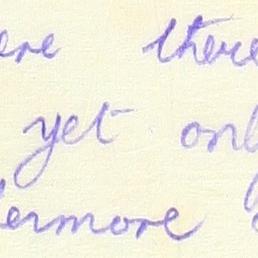 ere there
yet onl
ermore